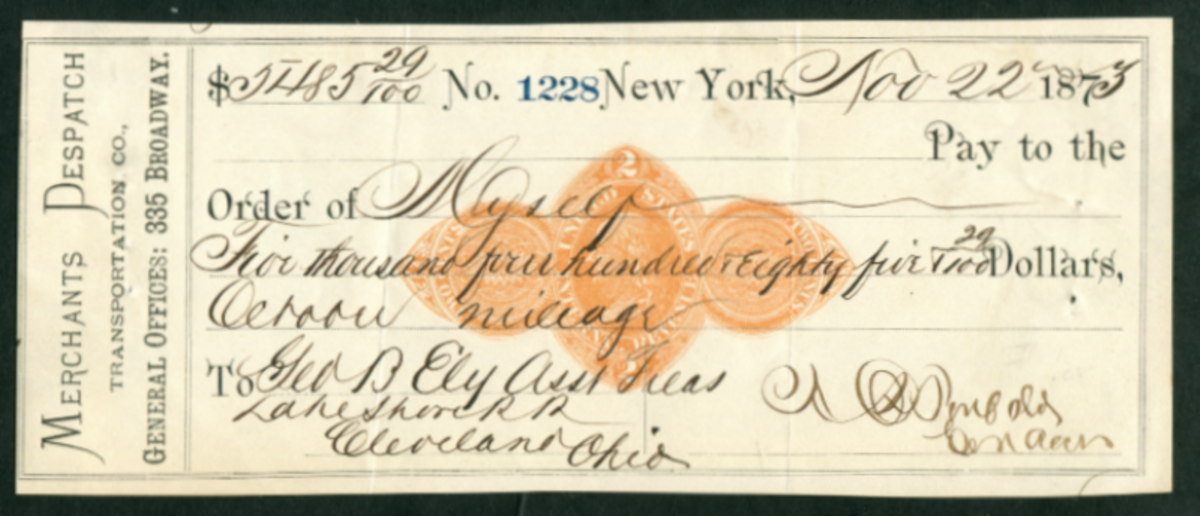 MERCHANTS DESPATCH
TRANSPORTATION CO.,
GENERAL OFFICES: 335 BROADWAY.
$5485 29/100 No. 1228 New York, Nov 22 1873
Pay to the
Order of Myself
Five thousand four hundred & Eighty five & 29/100 Dollars,
October mileage
To Geo B Ely Asst Treas
Lake Shore RR
Cleveland Ohio
2
UNITED STATES